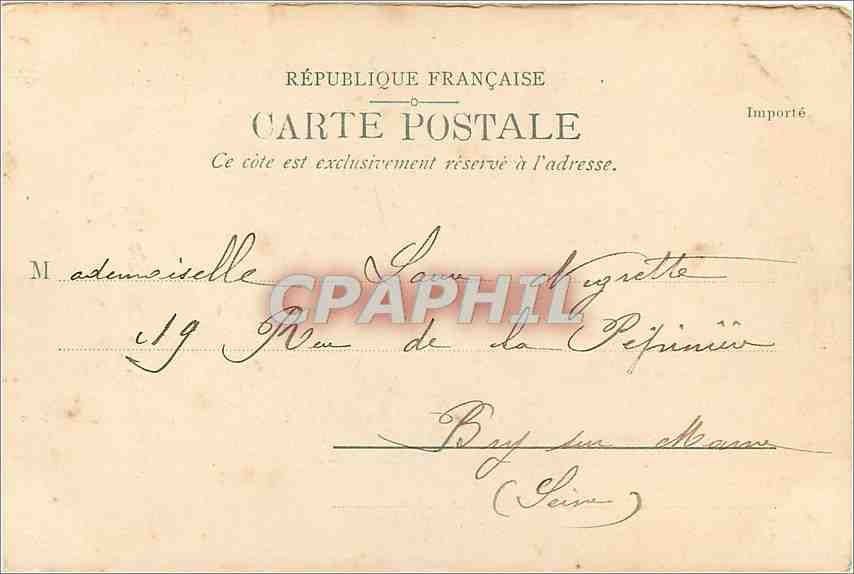 RÉPUBLIQUE FRANÇAISE
CARTE POSTALE
Importé
Ce côte est exclusivement réservé à l'adresse.
Mademoiselle Negrette
19 Rue de la Pépinière
CPAPHIL
Bry sur Marne
(Seine)